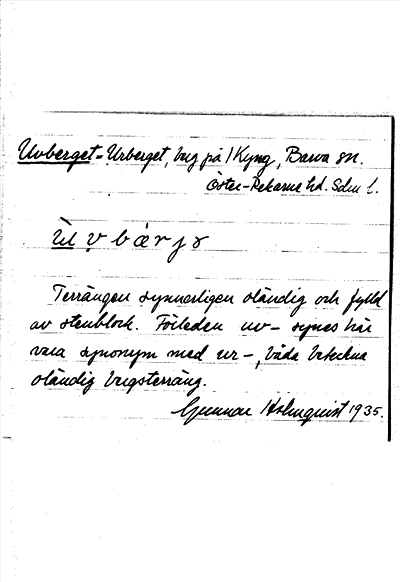 Uvberget - Urberget, berg på / Kyng, Barva sn.
Öster-Rekarne hd. Sdm l.
Ùl v b æ r j ɤ
Terrängen synnerligen oländig och fylld
av stenblock. Förleden uv- synes här
vara synonym med ur-, båda beteckna
oländig bergsterräng.
Gunnar Holmquist 1935.